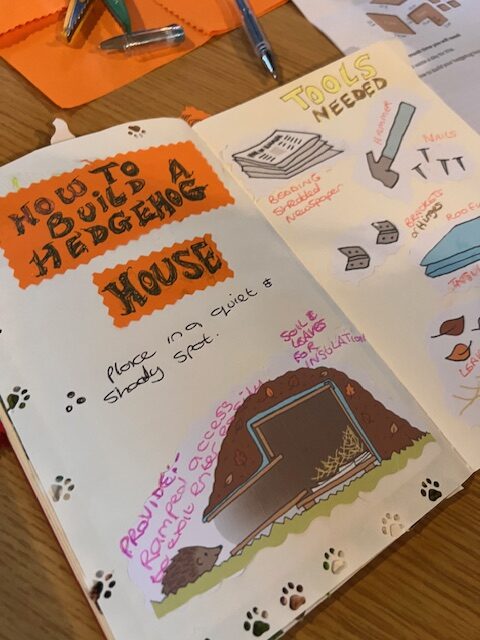 HOW TO
BUILD A
HEDGEHOG
HOUSE
Place in a quiet &
shady spot.
SOIL &
LEAVES
FOR
INSULATION
PROVIDE:-
Ramped access
to exit enter easily
TOOLS
NEEDED
BEDDING -
Shredded
Newspaper
HAMMER
NAILS
BRACKETS
or Hinges